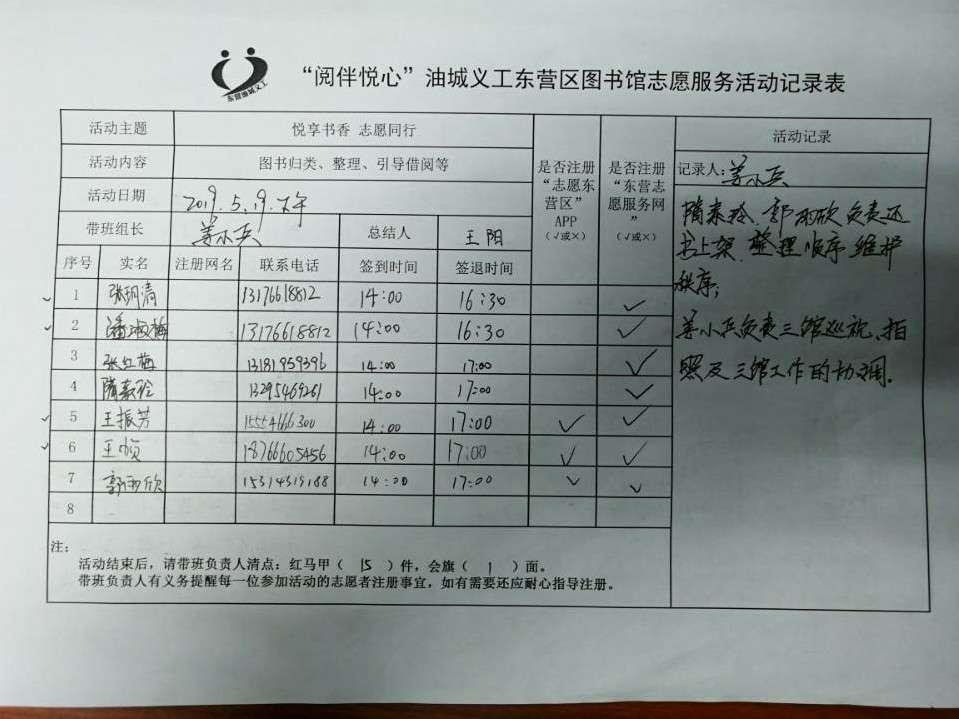 东营油城义工
“阅伴悦心”油城义工东营区图书馆志愿服务活动记录表
活动主题 悦享书香 志愿同行
活动内容 图书归类、整理、引导借阅等
活动日期 2019.5.19.下午
带班组长 姜小兵 总结人 王阳
是否注册“志愿东营区”APP（√或×）
是否注册“东营志愿服务网”（√或×）
序号 实名 注册网名 联系电话 签到时间 签退时间
1 张玥清 13176618812 14:00 16:30 ✓
2 潘淑梅 13176618812 14:00 16:30 ✓
3 张红梅 13181959396 14:00 17:00 ✓
4 隋素玲 13295469261 14:00 17:00 ✓
5 王振芳 15554666300 14:00 17:00 ✓ ✓
6 王 18766605456 14:00 17:00 ✓ ✓
7 郭雨欣 15314319188 14:00 17:00 ✓ ✓
8
活动记录
记录人:姜小兵
隋素玲、郭雨欣负责还
书上架 整理顺序 维护
秩序;
姜小兵负责三馆巡视、拍
照及三馆工作的协调.
注:
活动结束后，请带班负责人清点：红马甲（ 15 ）件，会旗（ 1 ）面。
带班负责人有义务提醒每一位参加活动的志愿者注册事宜，如有需要还应耐心指导注册。